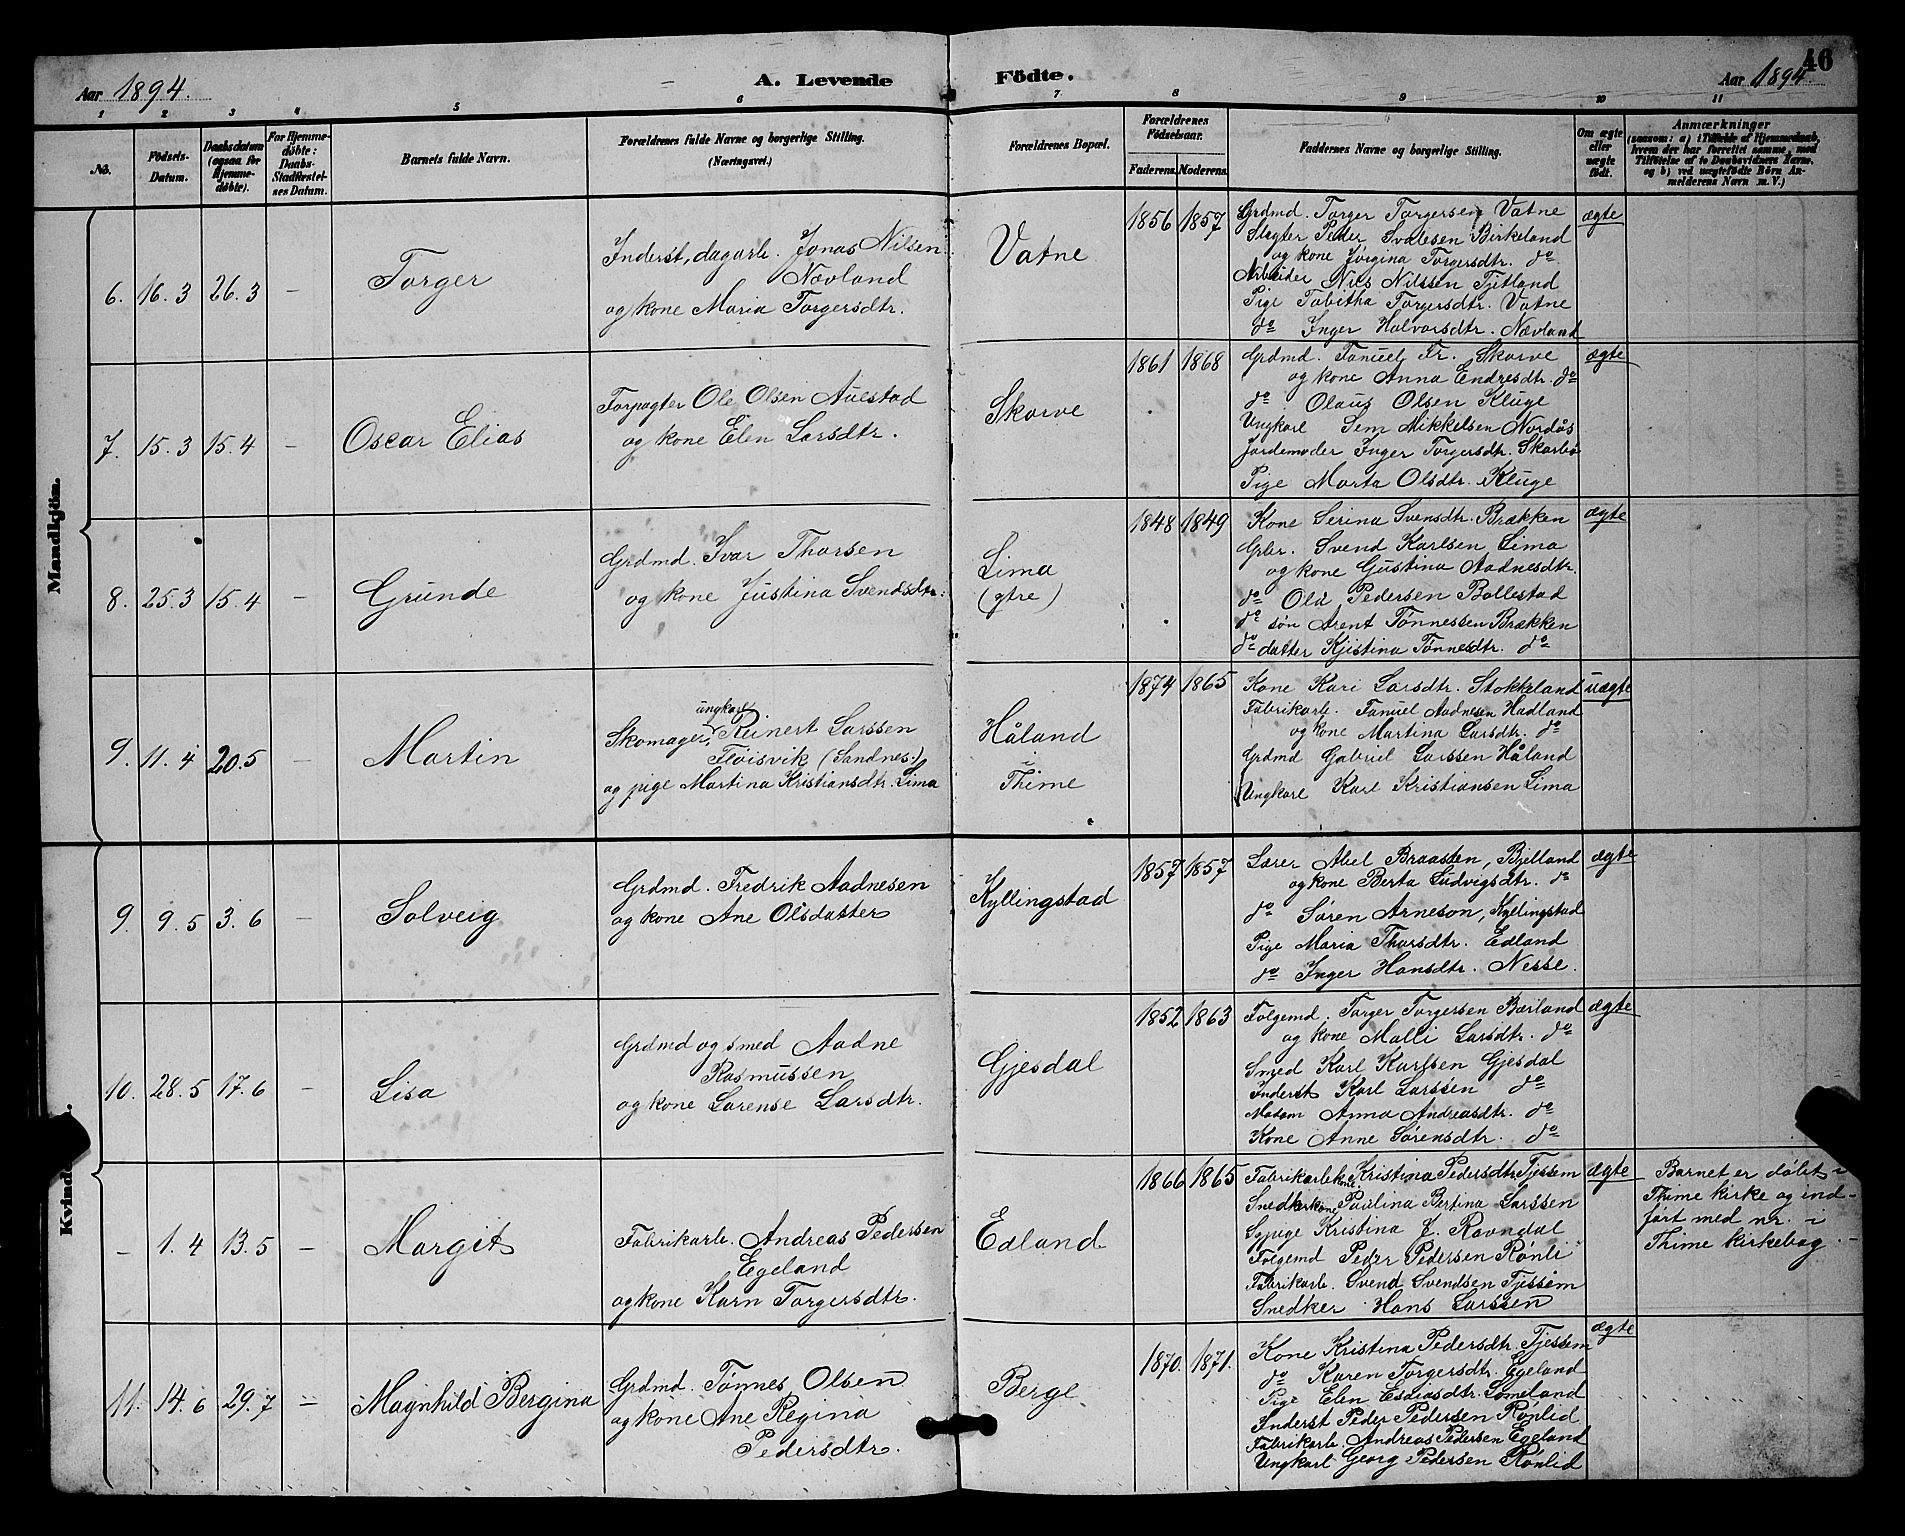 Aar 1894. A. Levende Födte. Aar 1894. 46
1 2 3 4 5 6 7 8 9 10 11
No. Födsels-Datum. Daabsdatum (ogsaa for Hjemme-döbte). For Hjemme-döbte: Daabs-Stadfæstelses Datum. Barnets fulde Navn. Forældrenes fulde Navne og borgerlige Stilling. (Næringsvei.) Forældrenes Bopæl. Forældrenes Födselsaar. Faderens. Moderens. Faddernes Navne og borgerlige Stilling. Om ægte eller uægte födt. Anmærkninger (saasom: a) i Tilfælde af Hjemmedaab, hvem der har forrettet samme, med Tilföielse af to Daabsvidners Navne, og b) ved uægtefödte Börn Anmelderens Navn m. V.)
Mandkjön.
6. 16.3 26.3 – Torger
Inderst, dagarb. Jonas Nilsen
Nævland
og kone Maria Torgersdtr.
Vatne
1856 1857
Grdmd. Torger Torgersen Vatne
Slagter Peder Svalesen Birkeland
og kone Jorgina Torgersdtr. do
Arbeider Nils Nilssen Tjetland
Pige Tabitha Torgersdtr. Vatne
do Inger Halvorsdtr. Nævland
ægte
7. 15.3 15.4 – Oscar Elias
Forpagter Ole Olsen Auestad
og kone Elen Larsdtr.
Skorve
1861 1868
Grdmd. Tanuel Fr. Skorve
og kone Anna Endresdtr. do
do Olaus Olsen Kluge
Ungkarl Sem Mikkelsen Nordås
Jordemoder Inger Torgersdtr. Skarbö
Pige Marta Olsdtr. Kluge
ægte
8. 25.3 15.4 – Grunde
Grdmd. Ivar Thorsen
og kone Justina Svendsdtr.
Lima
(ytre)
1848 1849
Kone Serina Svensdtr. Brækken
Gbr. Svend Karlsen Lima
og kone Gustina Aadnesdtr.
do Ola Pedersen Bollestad
do sön Arent Tönnessen Brækken
do datter Kjistina Tönnesdtr. do
ægte
9. 11.4 20.5 Martin
ungkarl
Skomager, Reinert Larssen
Flöisvik (Sandnes)
og pige Martina Kristiansdtr. Lima
Håland
i
Thime
1874 1865
Kone Kari Larsdtr. Stokkeland
Fabrikarb. Tanuel Aadnesen Hadland
og kone Martina Larsdtr. do
Grdmd Gabriel Larssen Håland
Ungkarl Karl Kristiansen Lima
uægte
Kvinde
9. 9.5 3.6 – Solveig
Grdmd. Fredrik Aadnesen
og kone Ane Olsdatter
Kyllingstad
1857 1857
Lærer Abel Braasten, Bjelland
og kone Berta Ludvigsdtr. do
do Sören Arneson, Kyllingstad
Pige Maria Thorsdtr. Edland
do Inger Hansdtr. Nesse.
ægte
10. 28.5 17.6 – Lisa
Grdmd og smed Aadne
Rasmussen
og kone Larense Larsdtr.
Gjesdal
1852 1863
Folgemd. Torger Torgersen Bærland
og kone Malli Larsdtr. do
Smed Karl Karlsen Gjesdal
Inderst Karl Larssen do
Madam Anna Andreasdtr. do
Kone Anne Sörensdtr. do
ægte
– 1.4 13.5 – Margit
Fabrikarb. Andreas Pedersen
Egeland
og kone Karn Torgersdtr.
Edland
1866 1865
Fabrikarb.kone Kristina Pedersdtr. Tjessem
Snedkerkone Paulina Bertina Larssen
Sypige Kristina J. Ravndal
Folgemd Peder Pedersen Rönli
Fabrikarb. Svend Svendsen Tjessem
Snedker Hans Larssen
ægte
Barnet er döbt i
Thime kirke og ind-
fört med nr. i
Thime kirkebog.
11. 14.6 29.7 – Magnhild Bergina
Grdmd. Tönnes Olsen
og kone Ane Regina
Pedersdtr.
Berge
1870. 1871.
Kone Kristina Pedersdtr. Tjessem
do Karen Torgersdtr. Egeland
Pige Elen Esaiasdtr. Limeland
Inderst Peder Pedersen Rönlid
Fabrikarb. Andreas Pedersen Egeland
Ungkarl Georg Pedersen Rönlid
ægte